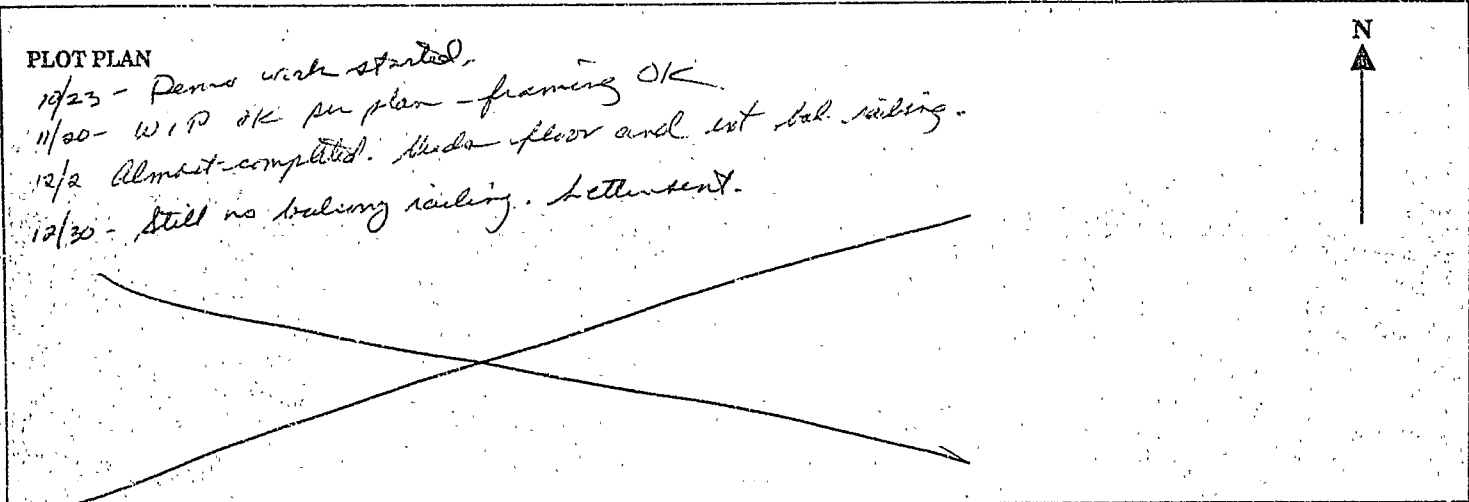 N
PLOT PLAN
10/23 - Demo work started.
11/20 - W.I.P OK per plan - framing OK
12/2 Almost completed. Needs floor and ext bal. railing.
12/30 - Still no balcony railing. Letter sent.